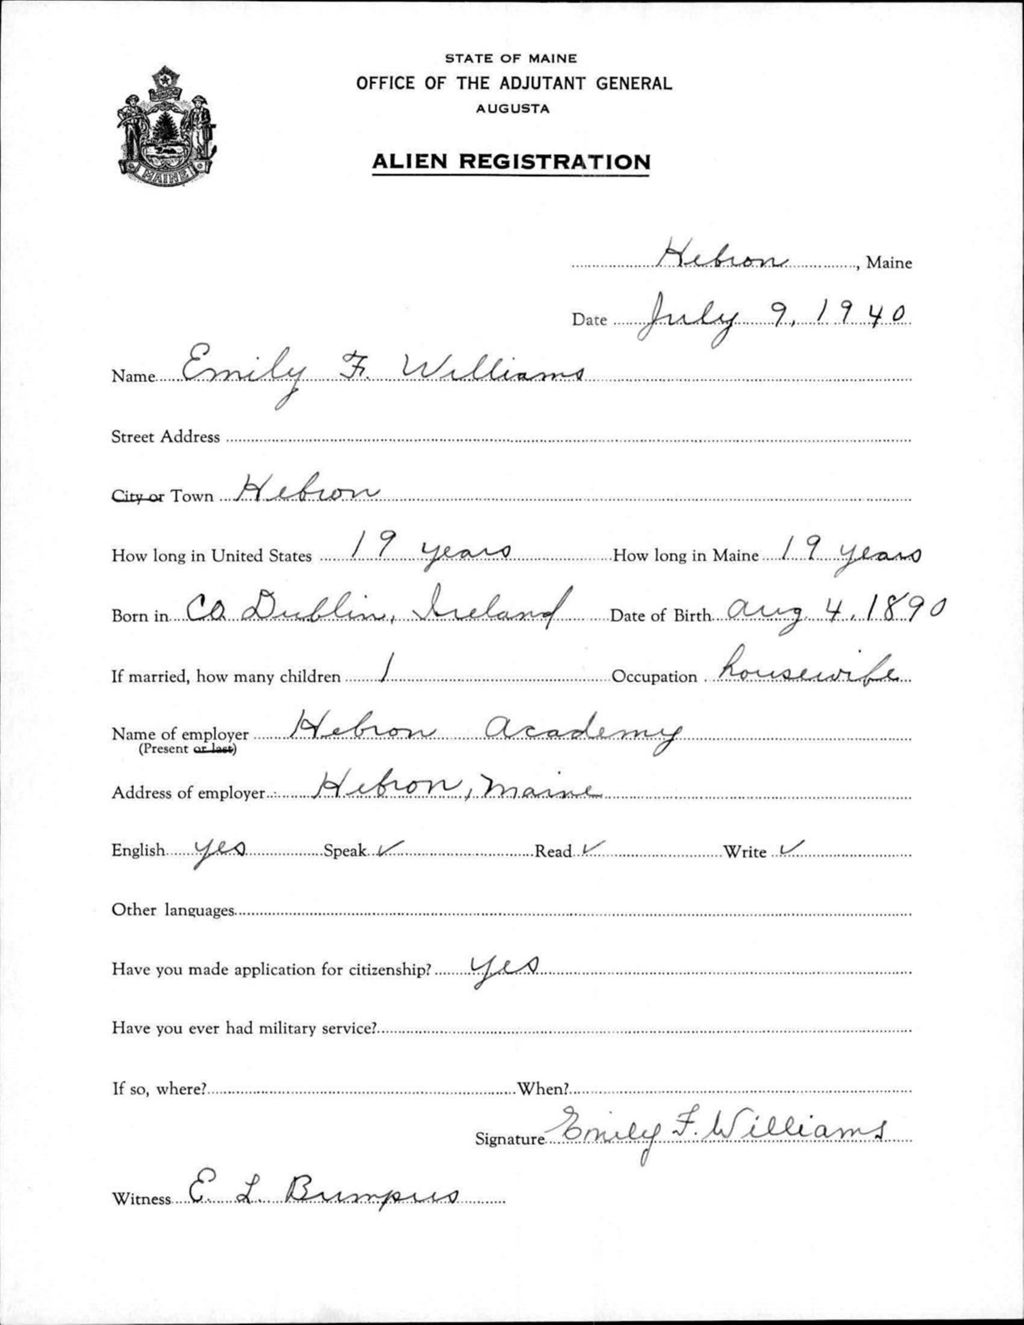 STATE OF MAINE
OFFICE OF THE ADJUTANT GENERAL
AUGUSTA
ALIEN REGISTRATION
MAINE
Hebron, Maine
Date July 9, 1940
Name Emily F. Williams
Street Address
City or Town Hebron
How long in United States 19 years How long in Maine 19 years
Born in Co Dublin, Ireland Date of Birth Aug 4, 1890
If married, how many children 1 Occupation housewife
Name of employer Hebron Academy
(Present or last)
Address of employer Hebron, Maine
English yes Speak ✓ Read ✓ Write ✓
Other languages
Have you made application for citizenship? yes
Have you ever had military service?
If so, where? When?
Signature Emily F. Williams
Witness E. L. Bumpus